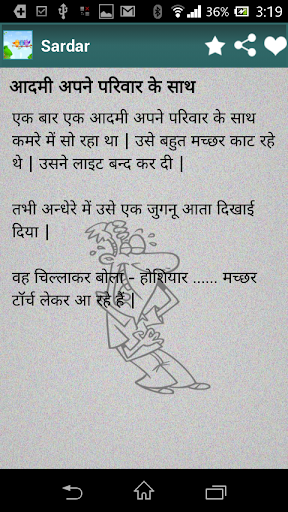 36% 3:19
Sardar
आदमी अपने परिवार के साथ
एक बार एक आदमी अपने परिवार के साथ
कमरे में सो रहा था | उसे बहुत मच्छर काट रहे
थे | उसने लाइट बन्द कर दी |
तभी अन्धेरे में उसे एक जुगनू आता दिखाई
दिया |
वह चिल्लाकर बोला - होशियार ...... मच्छर
टॉर्च लेकर आ रहे हैं |